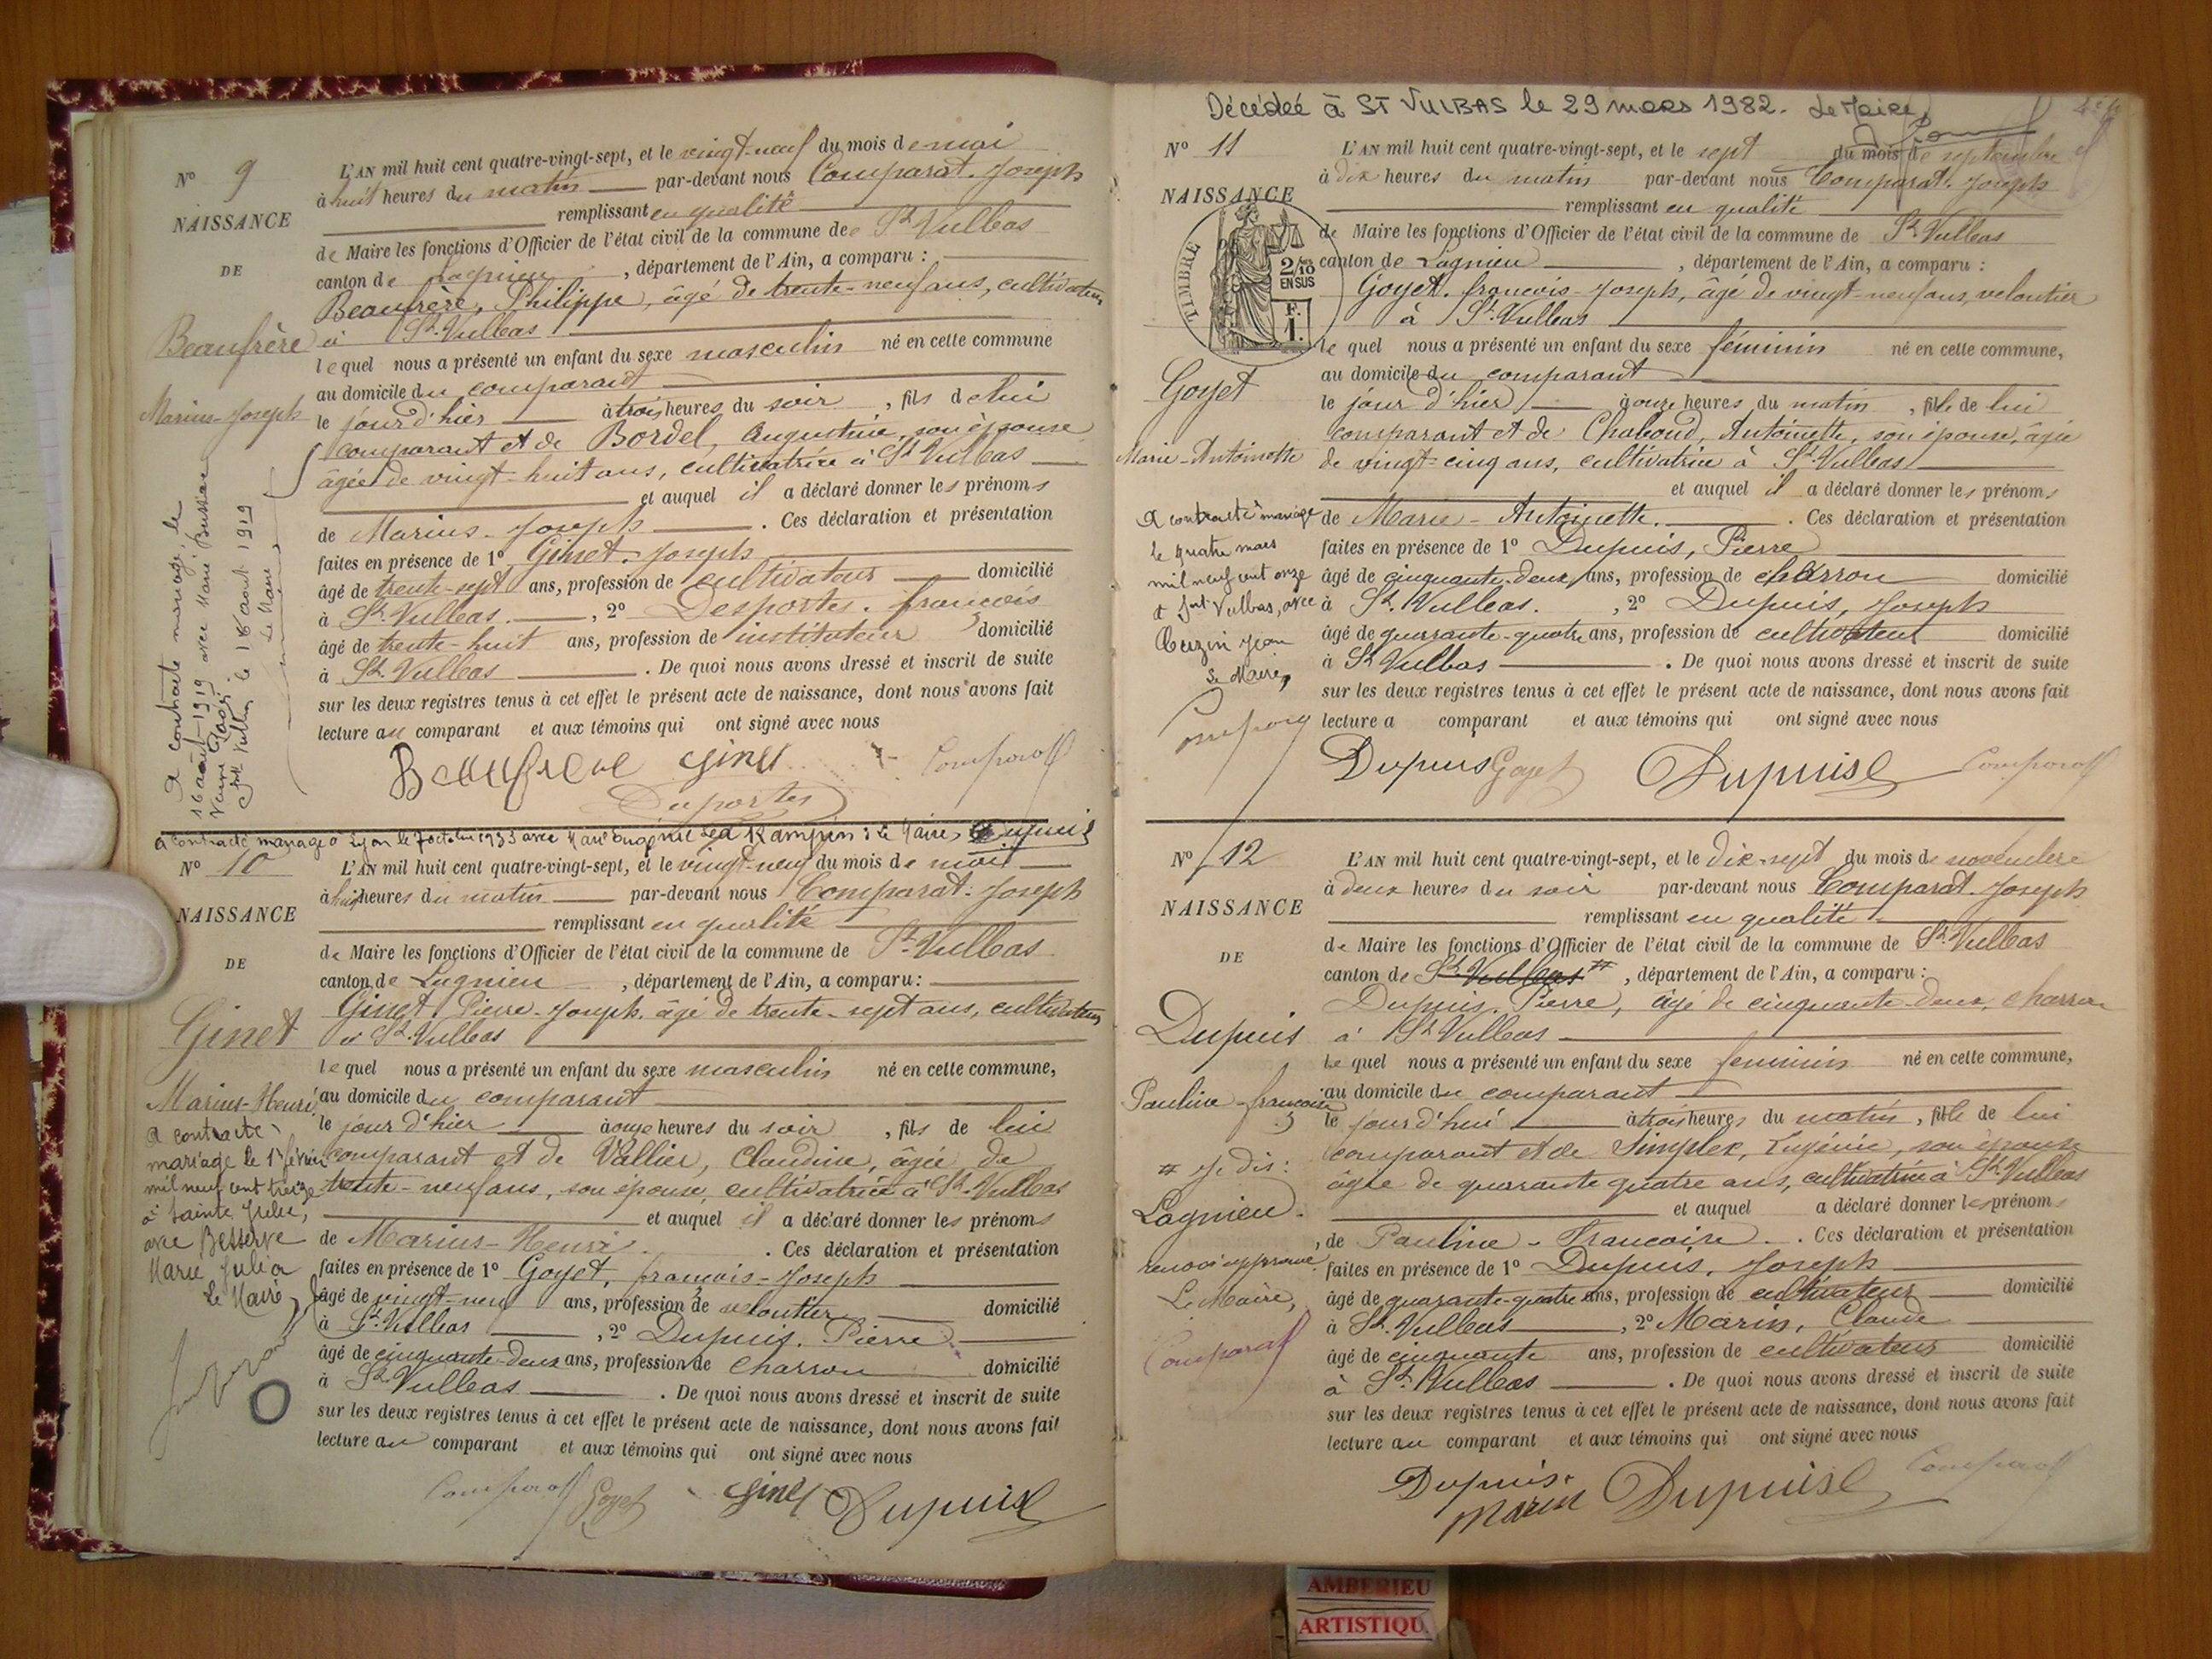 N° 9
NAISSANCE
DE
Beaufrère
Marius-Joseph
A contracté mariage le
16 août 1919 avec Marie
Veuve
St Vulbas, le 18 août 1919
Le Maire
L'AN mil huit cent quatre-vingt-sept, et le vingt-neuf du mois de mai
à huit heures du matin par-devant nous Comparat Joseph
remplissant en qualité
de Maire les fonctions d'Officier de l'état civil de la commune de St Vulbas
canton de Lagnieu, département de l'Ain, a comparu :
Beaufrère, Philippe, âgé de trente-neuf ans, cultivateur
à St Vulbas
lequel nous a présenté un enfant du sexe masculin né en cette commune
au domicile du comparant
le jour d'hier à trois heures du soir, fils de lui
comparant et de Bordel, Augustine, son épouse
âgée de vingt-huit ans, cultivatrice à St Vulbas
et auquel il a déclaré donner les prénoms
de Marius-Joseph. Ces déclaration et présentation
faites en présence de 1° Ginet Joseph
âgé de trente-sept ans, profession de cultivateur domicilié
à St Vulbas, 2° Desportes, françois
âgé de trente-huit ans, profession de instituteur domicilié
à St Vulbas. De quoi nous avons dressé et inscrit de suite
sur les deux registres tenus à cet effet le présent acte de naissance, dont nous avons fait
lecture au comparant et aux témoins qui ont signé avec nous
Beaufrere Ginet Comparat
Desportes
a contracté mariage à Lyon le 7 octobre 1933 avec Marie Eugénie Léa Rampin : Le Maire, Dupuis
N° 10
NAISSANCE
DE
Ginet
Marius-Henri
A contracté
mariage le 1er février
mil neuf cent treize
à Sainte Julie,
avec Besserve
Marie Julia
Le Maire,
L'AN mil huit cent quatre-vingt-sept, et le vingt-neuf du mois de mai
à huit heures du matin par-devant nous Comparat Joseph
remplissant en qualité
de Maire les fonctions d'Officier de l'état civil de la commune de St Vulbas
canton de Lagnieu, département de l'Ain, a comparu :
Ginet Pierre-Joseph, âgé de trente-sept ans, cultivateur
à St Vulbas
lequel nous a présenté un enfant du sexe masculin né en cette commune,
au domicile du comparant
le jour d'hier à onze heures du soir, fils de lui
comparant et de Vallier, Claudine, âgée de
trente-neuf ans, son épouse, cultivatrice à St Vulbas
et auquel il a déclaré donner les prénoms
de Marius-Henri. Ces déclaration et présentation
faites en présence de 1° Goyet, françois-Joseph
âgé de vingt-neuf ans, profession de veloutier domicilié
à St Vulbas, 2° Dupuis, Pierre
âgé de cinquante-deux ans, profession de charron domicilié
à St Vulbas. De quoi nous avons dressé et inscrit de suite
sur les deux registres tenus à cet effet le présent acte de naissance, dont nous avons fait
lecture au comparant et aux témoins qui ont signé avec nous
Comparat Goyet Ginet Dupuis
Décédée à ST VULBAS le 29 mars 1982. Le Maire,
N° 11
NAISSANCE
TIMBRE
2/10
EN SUS
F.
1.
Goyet
Marie-Antoinette
A contracté mariage
le quatre mars
mil neuf cent onze
à St Vulbas, avec
Cuzin Jean
Le Maire,
L'AN mil huit cent quatre-vingt-sept, et le sept du mois de septembre
à dix heures du matin par-devant nous Comparat Joseph
remplissant en qualité
de Maire les fonctions d'Officier de l'état civil de la commune de St Vulbas
canton de Lagnieu, département de l'Ain, a comparu :
Goyet, françois-Joseph, âgé de vingt-neuf ans, veloutier
à St Vulbas
le quel nous a présenté un enfant du sexe féminin né en cette commune,
au domicile du comparant
le jour d'hier à onze heures du matin, fille de lui
comparant et de Chaboud, Antoinette, son épouse, âgée
de vingt-cinq ans, cultivatrice à St Vulbas
et auquel il a déclaré donner les prénoms
de Marie-Antoinette. Ces déclaration et présentation
faites en présence de 1° Dupuis, Pierre
âgé de cinquante-deux ans, profession de charron domicilié
à St Vulbas, 2° Dupuis, Joseph
âgé de quarante-quatre ans, profession de cultivateur domicilié
à St Vulbas. De quoi nous avons dressé et inscrit de suite
sur les deux registres tenus à cet effet le présent acte de naissance, dont nous avons fait
lecture a comparant et aux témoins qui ont signé avec nous
Dupuis Goyet Dupuis Comparat
N° 12
NAISSANCE
DE
Dupuis
Pauline-françoise
# Je dis :
Lagnieu.
renvoi approuvé
Le Maire,
Comparat
L'AN mil huit cent quatre-vingt-sept, et le dix-sept du mois de novembre
à deux heures du soir par-devant nous Comparat Joseph
remplissant en qualité
de Maire les fonctions d'Officier de l'état civil de la commune de St Vulbas
canton de St Vulbas #, département de l'Ain, a comparu :
Dupuis, Pierre, âgé de cinquante-deux, charron
à St Vulbas
le quel nous a présenté un enfant du sexe feminin né en cette commune,
au domicile du comparant
le jour d'hui à trois heures du matin, fille de lui
comparant et de Simplex, Eugénie, son épouse
âgée de quarante quatre ans, cultivatrice à St Vulbas
et auquel a déclaré donner les prénoms
de Pauline-Francoise. Ces déclaration et présentation
faites en présence de 1° Dupuis, Joseph
âgé de quarante-quatre ans, profession de cultivateur domicilié
à St Vulbas, 2° Marin, Claude
âgé de cinquante ans, profession de cultivateur domicilié
à St Vulbas. De quoi nous avons dressé et inscrit de suite
sur les deux registres tenus à cet effet le présent acte de naissance, dont nous avons fait
lecture au comparant et aux témoins qui ont signé avec nous
Dupuis Dupuis Comparat
Marin
AMBERIEU
ARTISTIQU